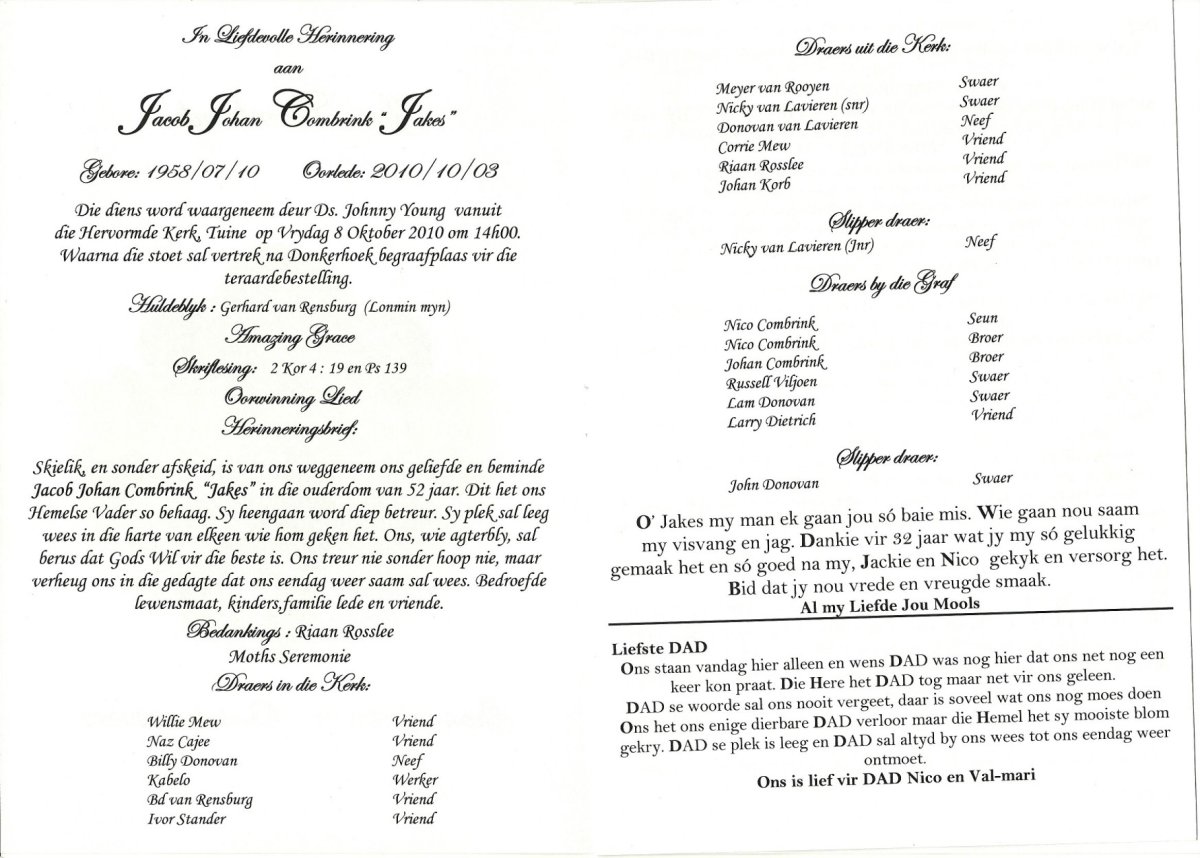 In Liefdevolle Herinnering
aan
Jacob Johan Combrink “Jakes”
Gebore: 1958/07/10 Oorlede: 2010/10/03
Die diens word waargeneem deur Ds. Johnny Young vanuit
die Hervormde Kerk, Tuine op Vrydag 8 Oktober 2010 om 14h00.
Waarna die stoet sal vertrek na Donkerhoek begraafplaas vir die
teraardebestelling.
Huldeblyk : Gerhard van Rensburg (Lonmin myn)
Amazing Grace
Skriflesing: 2 Kor 4 : 19 en Ps 139
Oorwinning Lied
Herinneringsbrief:
Skielik, en sonder afskeid, is van ons weggeneem ons geliefde en beminde
Jacob Johan Combrink “Jakes” in die ouderdom van 52 jaar. Dit het ons
Hemelse Vader so behaag. Sy heengaan word diep betreur. Sy plek sal leeg
wees in die harte van elkeen wie hom geken het. Ons, wie agterbly, sal
berus dat Gods Wil vir die beste is. Ons treur nie sonder hoop nie, maar
verheug ons in die gedagte dat ons eendag weer saam sal wees. Bedroefde
lewensmaat, kinders,familie lede en vriende.
Bedankings : Riaan Rosslee
Moths Seremonie
Draers in die Kerk:
Willie Mew Vriend
Naz Cajee Vriend
Billy Donovan Neef
Kabelo Werker
Bd van Rensburg Vriend
Ivor Stander Vriend
Draers uit die Kerk:
Meyer van Rooyen Swaer
Nicky van Lavieren (snr) Swaer
Donovan van Lavieren Neef
Corrie Mew Vriend
Riaan Rosslee Vriend
Johan Korb Vriend
Slipper draer:
Nicky van Lavieren (Jnr) Neef
Draers by die Graf
Nico Combrink Seun
Nico Combrink Broer
Johan Combrink Broer
Russell Viljoen Swaer
Lam Donovan Swaer
Larry Dietrich Vriend
Slipper draer:
John Donovan Swaer
O’ Jakes my man ek gaan jou só baie mis. Wie gaan nou saam
my visvang en jag. Dankie vir 32 jaar wat jy my só gelukkig
gemaak het en só goed na my, Jackie en Nico gekyk en versorg het.
Bid dat jy nou vrede en vreugde smaak.
Al my Liefde Jou Mools
Liefste DAD
Ons staan vandag hier alleen en wens DAD was nog hier dat ons net nog een
keer kon praat. Die Here het DAD tog maar net vir ons geleen.
DAD se woorde sal ons nooit vergeet, daar is soveel wat ons nog moes doen
Ons het ons enige dierbare DAD verloor maar die Hemel het sy mooiste blom
gekry. DAD se plek is leeg en DAD sal altyd by ons wees tot ons eendag weer
ontmoet.
Ons is lief vir DAD Nico en Val-mari